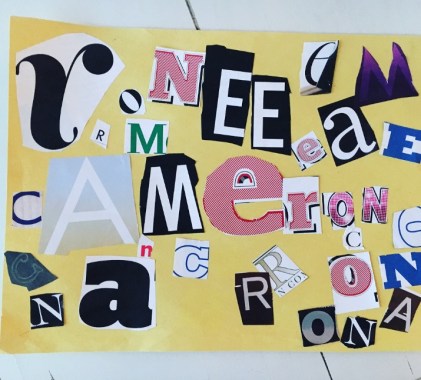 r O N E E C M
R M e a E
C A M e r o N C
n C C
C a R O N
N R O N N A